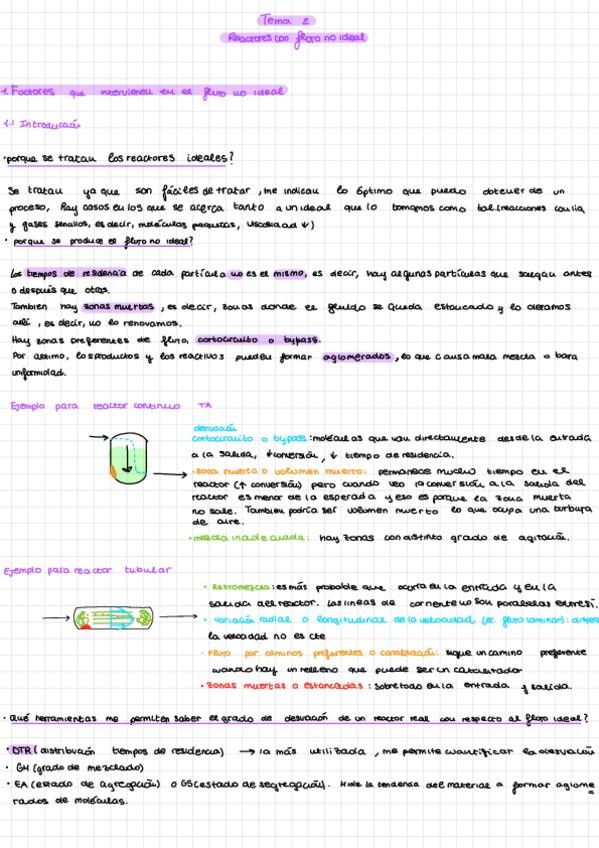 Tema 2
Reactores con flujo no ideal
1. Factores que intervienen en el flujo no ideal
1.1 Introducción
· porque se tratan los reactores ideales?
Se tratan ya que son fáciles de tratar, me indican lo óptimo que puedo obtener de un
proceso, Hay casos en los que se acerca tanto a un ideal que lo tomamos como tal (reacciones con liq
y gases sencillos, es decir, moléculas pequeñas, viscosidad ↓)
· porque se produce el flujo no ideal?
Los tiempos de residencia de cada partícula no es el mismo, es decir, hay algunas partículas que salgan antes
o después que otras.
Tambien hay zonas muertas, es decir, zonas donde el fluido se queda estancado y lo dejamos
allí, es decir, no lo renovamos.
Hay zonas preferentes de flujo, cortocircuito o bypass.
Por último, los productos y los reactivos pueden formar aglomerados, lo que causa mala mezcla o baja
uniformidad.
Ejemplo para reactor continuo TA
derivación
cortocircuito o bypass: moléculas que van directamente desde la entrada
a la salida, ↓ conversión, ↓ tiempo de residencia.
· zona muerta o volumen muerto: permanece mucho tiempo en el
reactor (↑ conversión) pero cuando veo la conversión a la salida del
reactor es menor de la esperada y eso es porque la zona muerta
no sale. Tambien podría ser volumen muerto lo que ocupa una burbuja
de aire.
· mezcla inadecuada: hay zonas con distinto grado de agitación.
Ejemplo para reactor tubular
· Retromezcla: es más probable que ocurra en la entrada y en la
salida del reactor. Las lineas de corriente no son paralelas entre sí.
· variación radial o longitudinal de la velocidad (ej. flujo laminar):
la velocidad no es cte
· Flujo por caminos preferentes o canalización: sigue un camino preferente
cuando hay un relleno que puede ser un catalizador
· Zonas muertas o estancadas: sobretodo en la entrada y salida.
· Qué herramientas me permiten saber el grado de desviación de un reactor real con respecto al flujo ideal?
· DTR (distribución tiempos de residencia) → la más utilizada, me permite cuantificar la desviación
· GM (grado de mezclado)
· EA (estado de agregación) o GS (estado de segregación). Mide la tendencia del material a formar aglome
rados de moléculas.